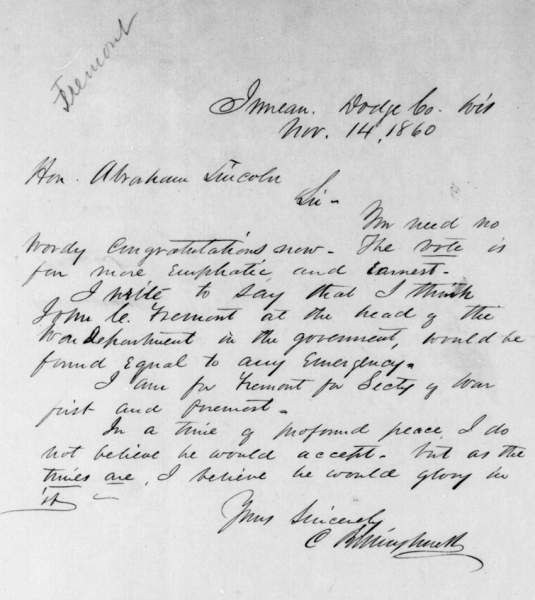 Fremont
Juneau. Dodge Co. Wis
Nov. 14, 1860
Hon. Abraham Lincoln
Sir -
You need no
wordy congratulations now - The vote is
far more Emphatic and Earnest -
I write to say that I think
John C. Fremont at the head of the
War Department in the government, would be
found Equal to any Emergency.
I am for Fremont for Secty of War
first and foremost -
In a time of profound peace, I do
not believe he would accept - but as the
times are, I believe he would glory in
it -
Yours Sincerely
C